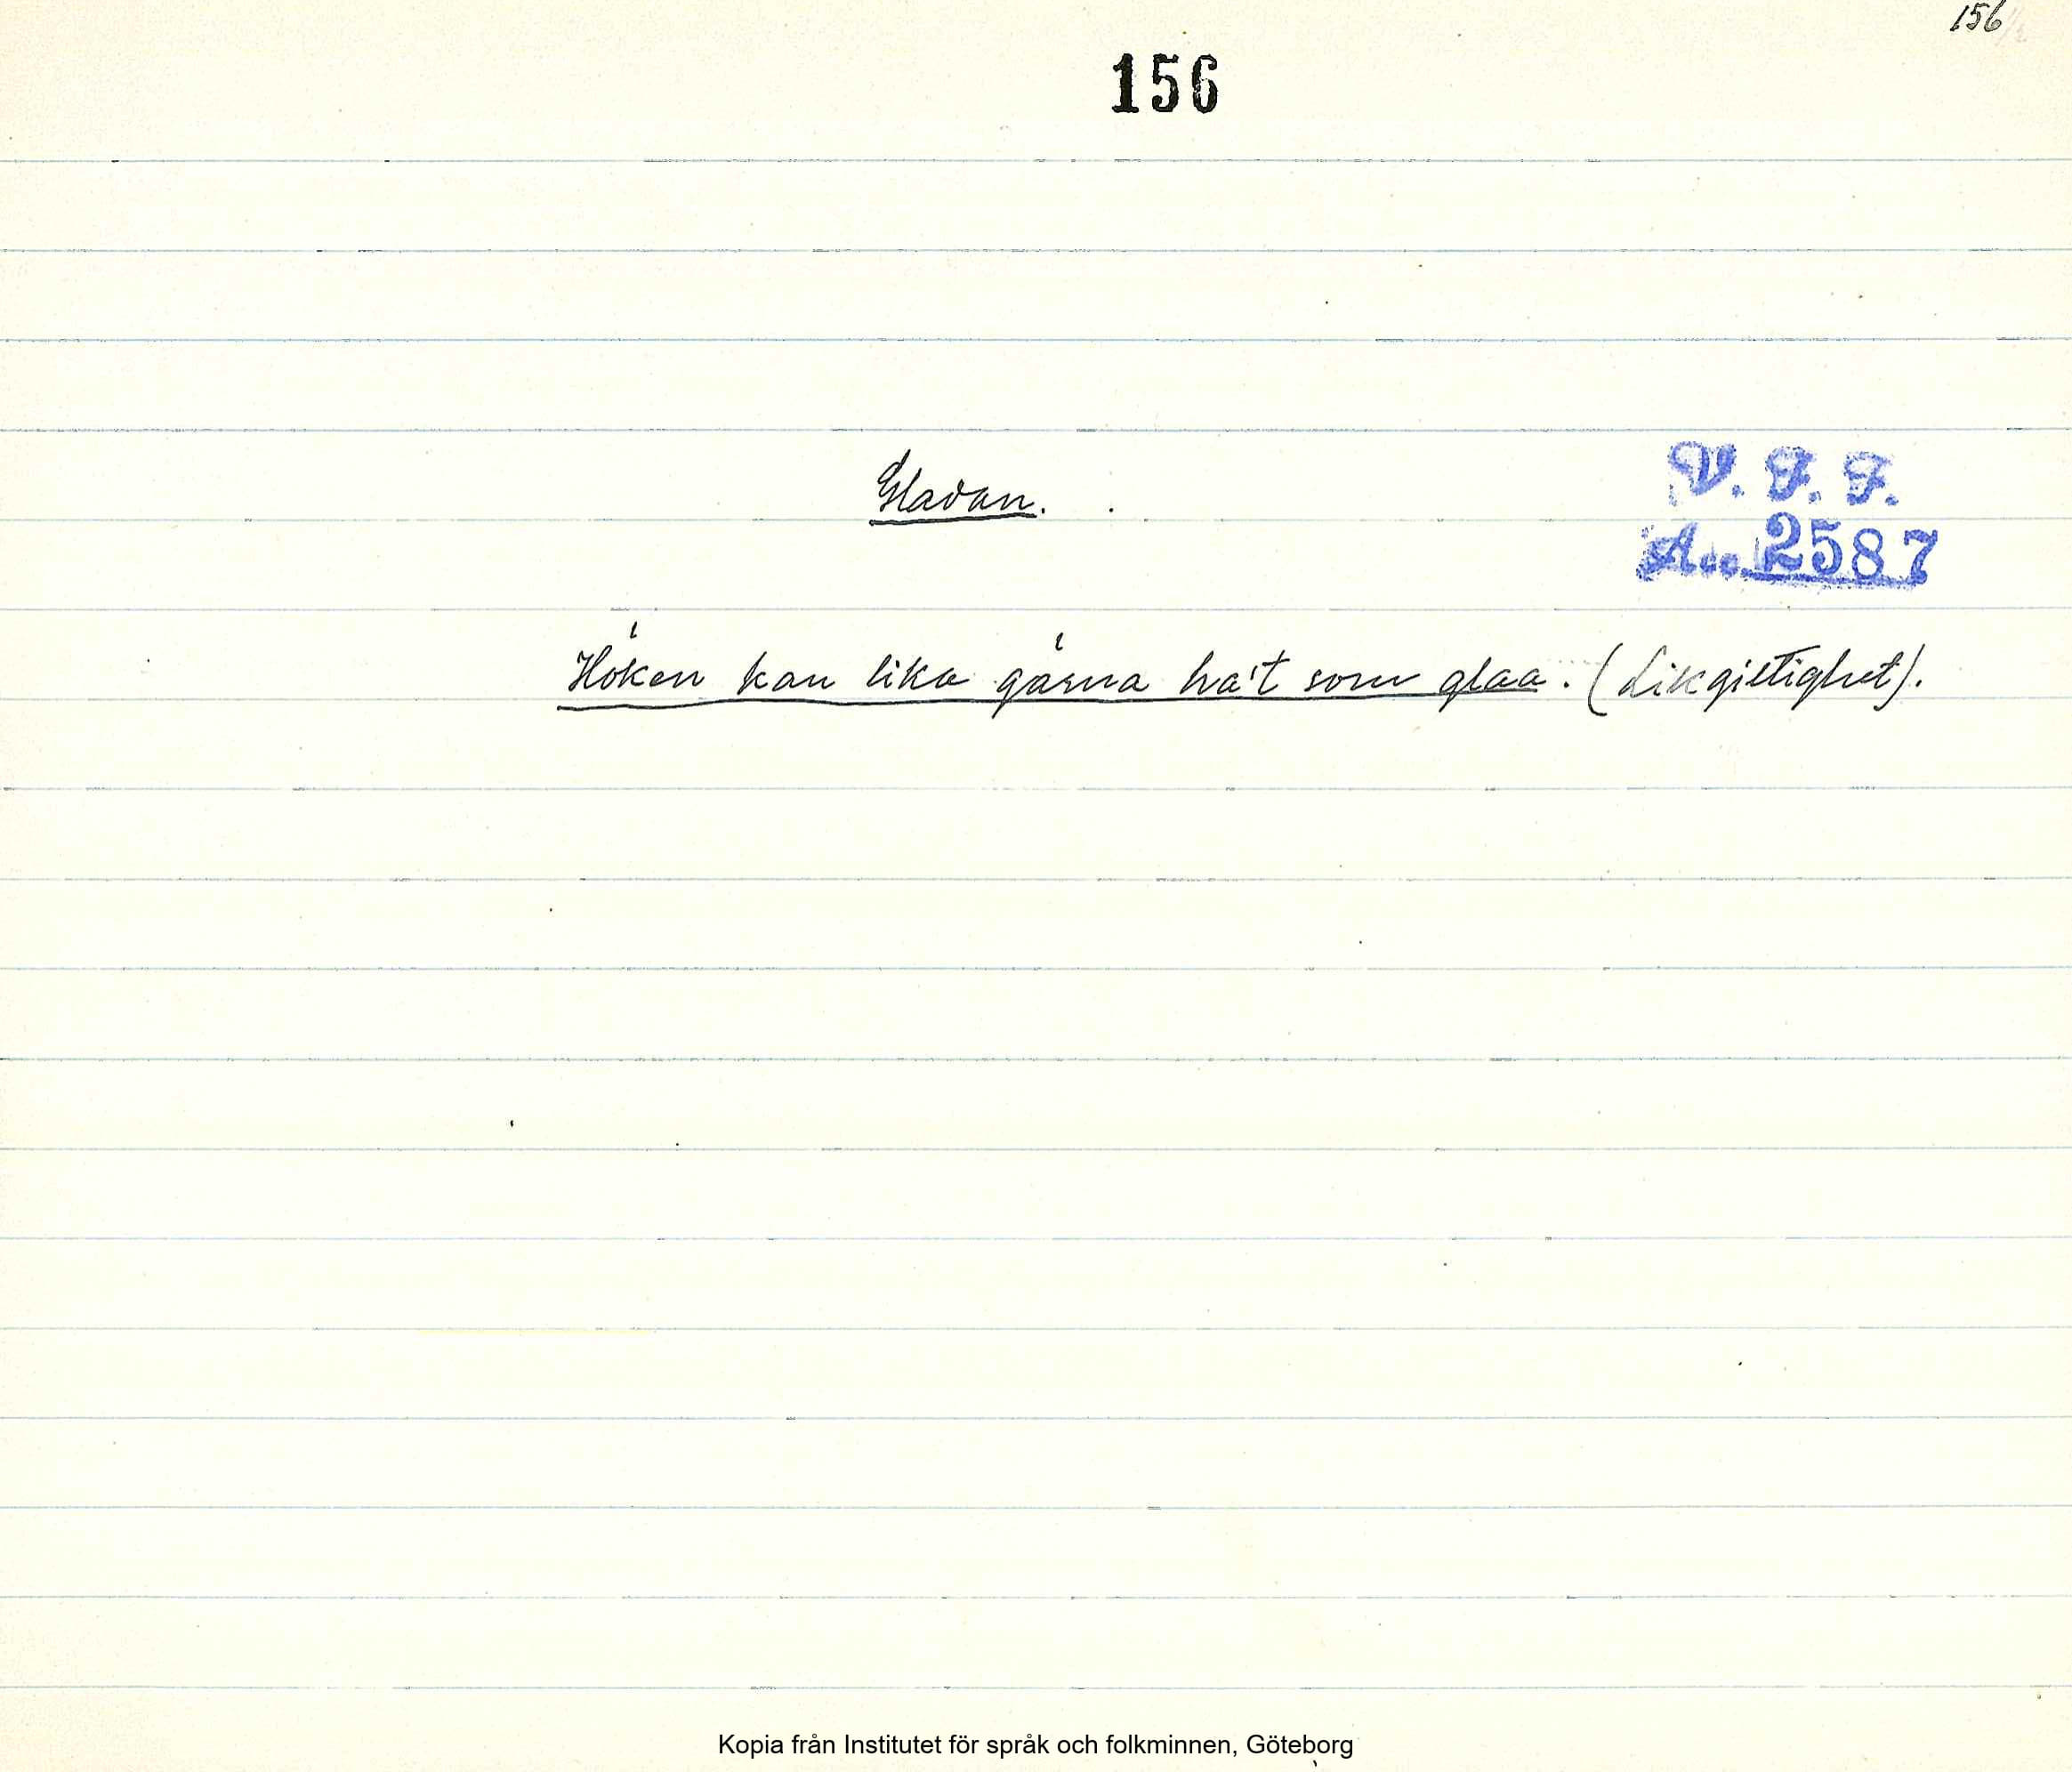 156
156
Gladan.
V. F. F.
Acc. 2587
Höken kan lika gärna ha't som glaa. (Likgiltighet).
Kopia från Institutet för språk och folkminnen, Göteborg